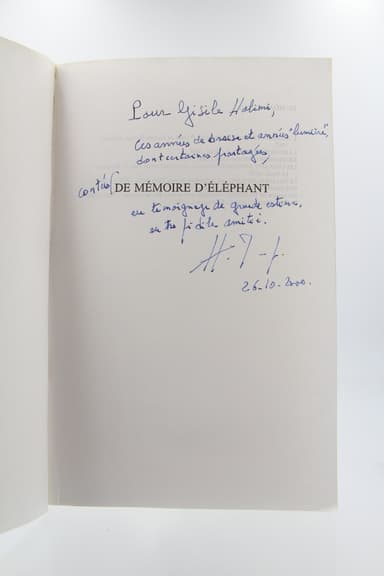 Pour Gisèle Halimi,
Ces années de braise et années "lumière",
dont certaines partagées,
contées
DE MÉMOIRE D'ÉLÉPHANT
en témoignage de grande estime,
en très fidèle amitié.
26-10-2000.